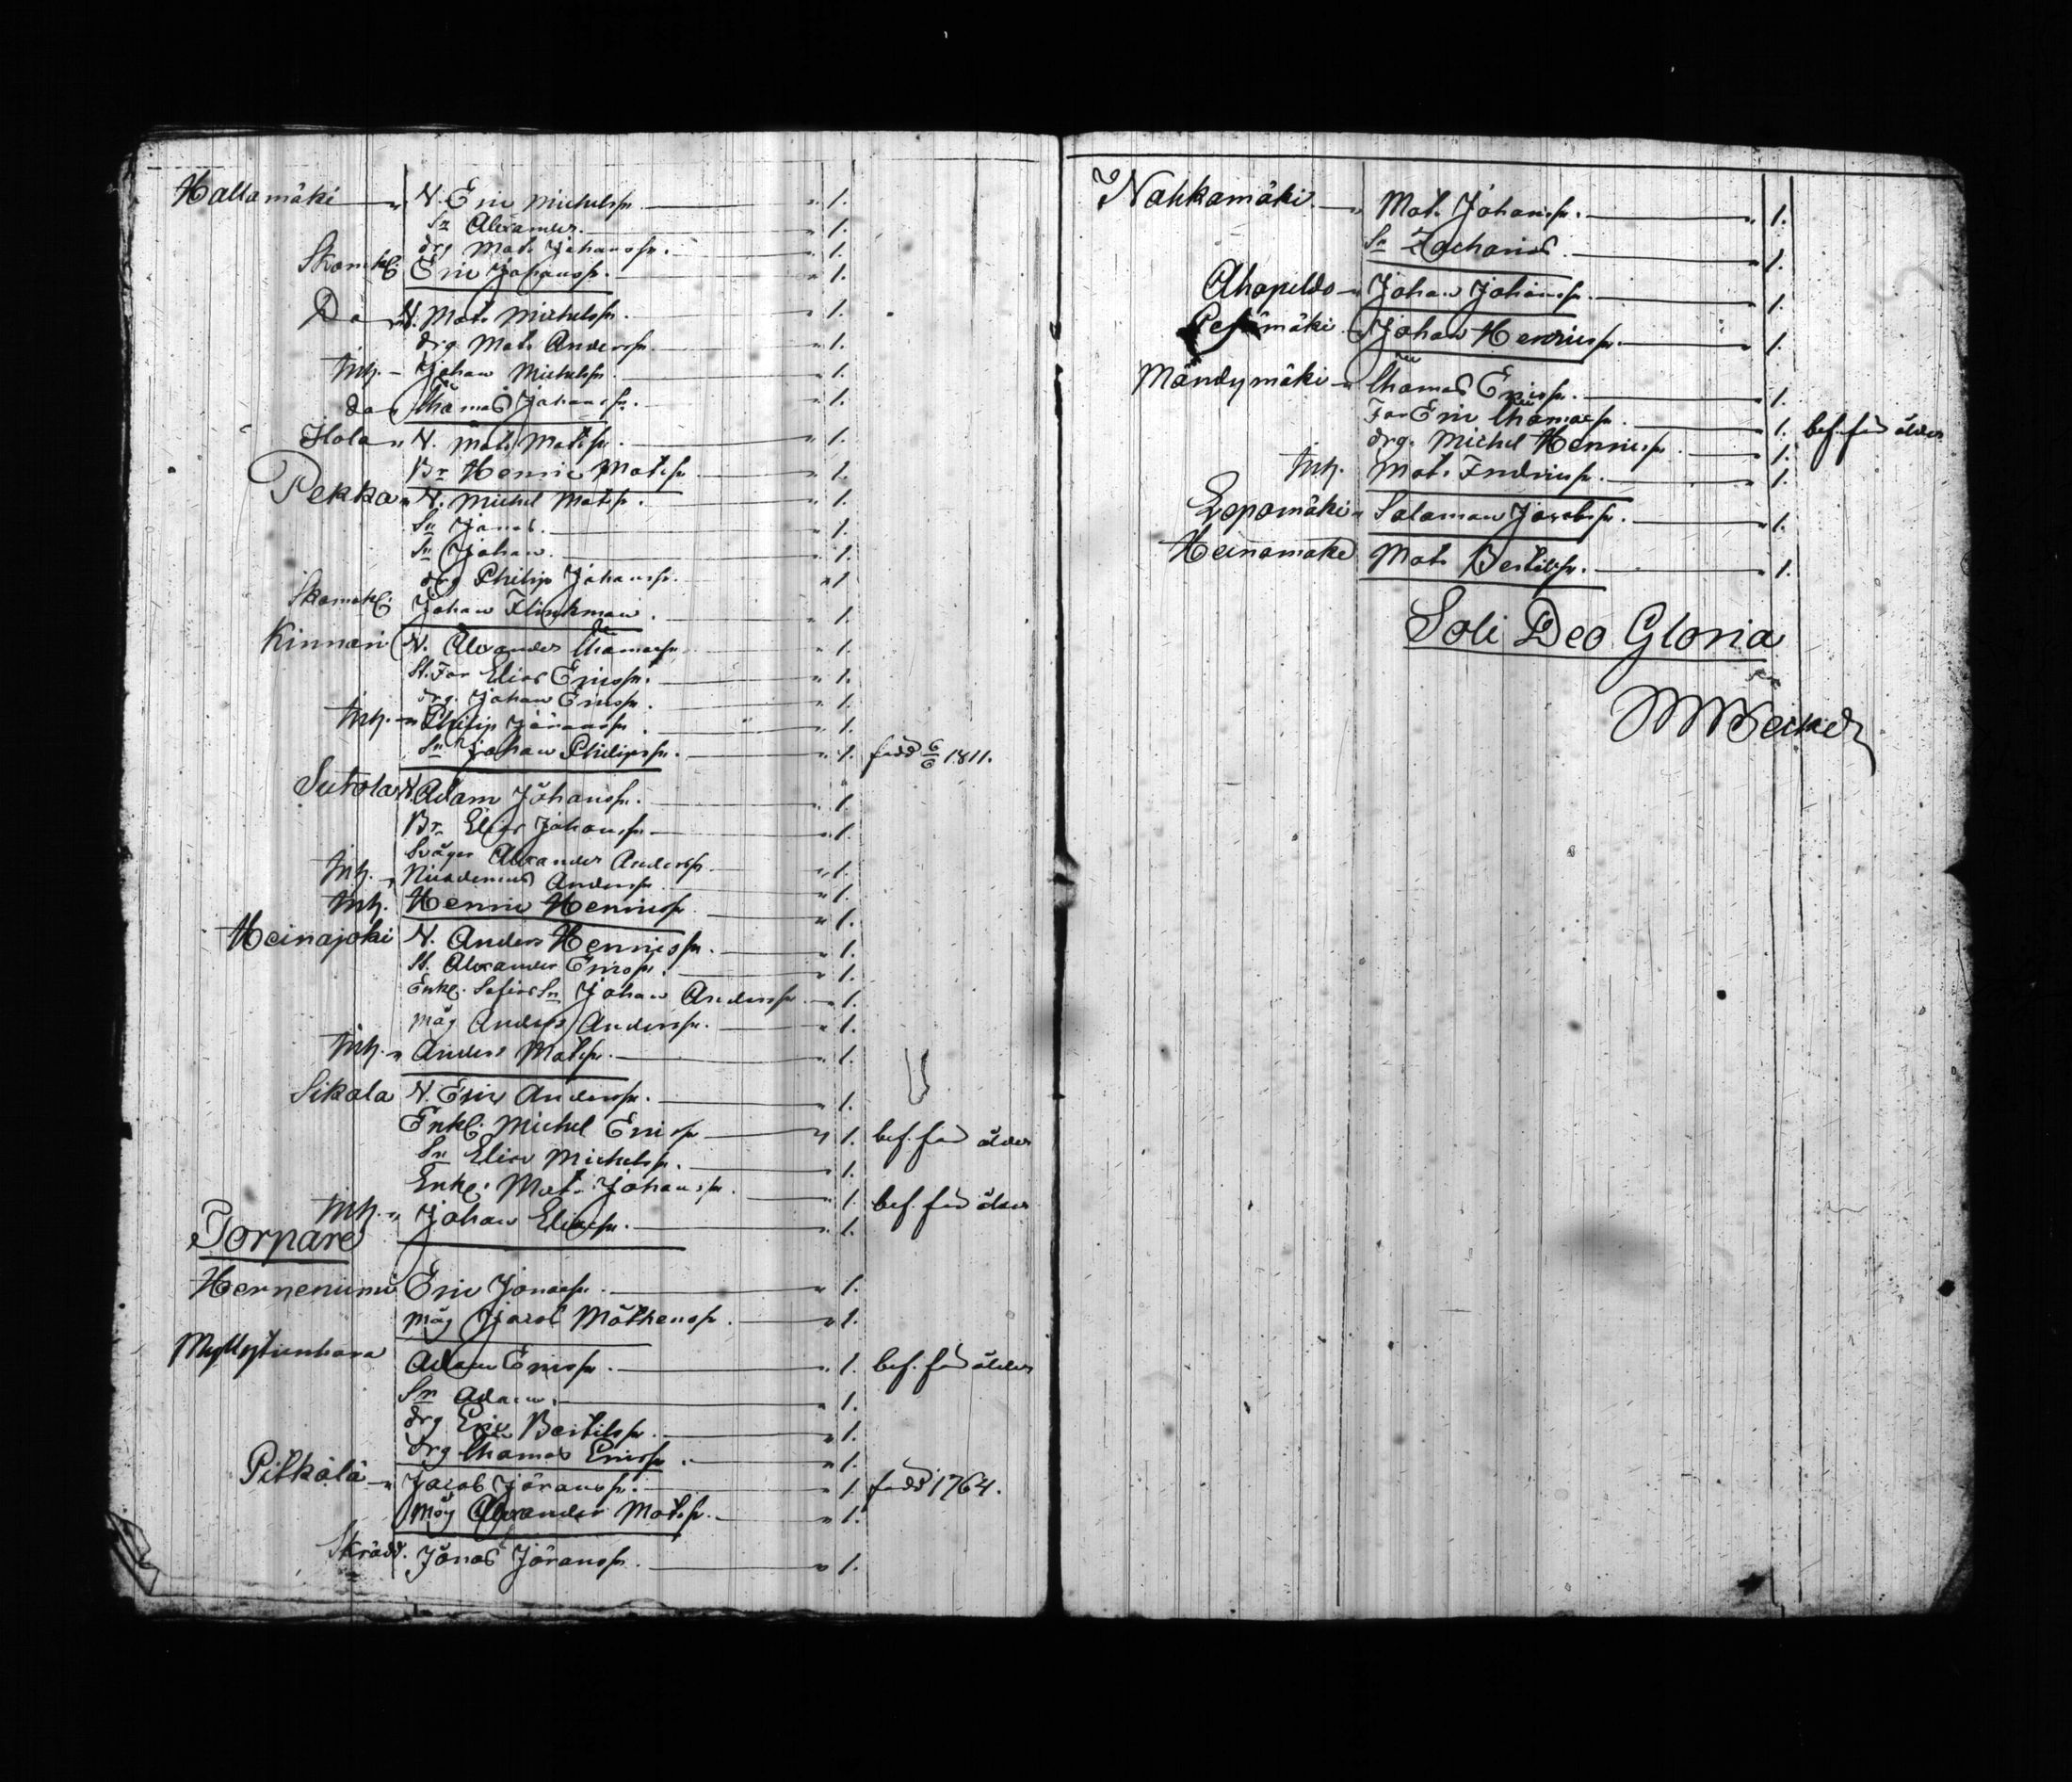 Hallamäki " N. Eric Michelsson " 1.
Sn Alexander. " 1.
drg Mats Johansson. " 1.
Skomak. Eric Johansson. " 1.
Do " N. Mats Michelsson. " 1.
drg Mats Andersson. " 1.
Inh. - Johan Michelsson. " 1.
do " Thomas Johansson. " 1.
Ilola " N. Mats Matsson. " 1.
Br. Henric Matsson. " 1.
Pekka " N. Michel Matsson. " 1.
Sn Jonas. " 1.
Sn Johan. " 1.
drg Philip Johansson. " 1
Skomak. Johan Flinkman. " 1.
Kinnari N. Alexander Thomasson. " 1.
St. Far Elias Ericsson. " 1.
drg. Johan Ericsson. " 1.
Inh. " Philip Jöransson. " 1.
Sn Johan Philipsson. " 1. född 6/6 1811.
Sutola N. Adam Johansson. " 1.
Br. Elias Johansson " 1.
Svåger Alexander Andersson. " 1.
Inh. " Nicodemus Andersson " 1.
Inh. Henric Henricsson " 1.
Heinajoki N. Anders Henricsson. " 1.
St. Alexander Ericsson. " 1.
Enkl. Johan Andersson. " 1.
Måg Anders Andersson. " 1.
Inh. " Anders Matsson. " 1.
Sikala N. Eric Andersson. " 1.
Enkl. Michel Ericsson " 1. bef. för ålder
Sn Elias Michelsson. " 1.
Enkl. Mats Johansson. " 1. bef. för ålder
Inh. " Johan Eliasson. " 1.
Torpare
Herneniemi Eric Jonasson. " 1.
Måg Jacob Mathensson. " 1.
Adam Ericsson. " 1. bef. för ålder
Sn Adam. " 1.
drg Eric Bertilsson. " 1.
drg Thomas Ericsson. " 1.
Pitkälä " Jacob Jöransson. " 1. född 1764.
Måg Alexander Matsson. " 1.
Skrädd. Jonas Jöransson. " 1.
Nahkamäki " Mats Johansson. " 1.
Sn Zacharias. " 1.
Ahopeldo " Johan Johansson. " 1.
Johan Henricsson. " 1.
Mändymäki " Thomas Ericsson. " 1.
Far Eric Thomasson. " 1. bef. för ålder
drg. Michel Henricsson. " 1.
Inh. Mats Indricsson. " 1.
Lepomäki " Salomon Jacobsson. " 1.
Heinamäki Mats Bertilsson. " 1.
Soli Deo Gloria